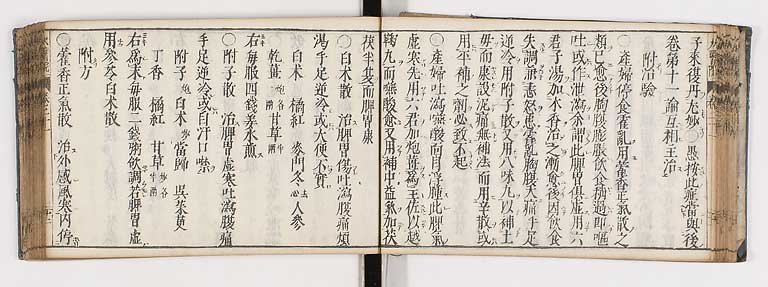 子來復丹尤妙〇愚按此症當與後
卷第十一論互相主治
附治驗
〇産婦停食霍亂用藿香正氣散之
類已愈後胸腹膨脹飲食稍過即嘔
吐或作泄瀉余謂此脾胃俱虛用六
君子湯加木香治之漸愈後因飲食
失調兼忿怒患霍亂胸腹大痛手足
逆冷用附子散又用八味丸以補土
母而康設泥痛無補法而用辛散或
用平補之劑必致不起
〇産婦吐瀉嚥酸面目浮腫此脾氣
虛寒先用六君加炮薑爲主佐以越
鞠丸而嚥酸愈又用補中益氣加茯
茯半夏而脾胃康
〇白朮散 治脾胃傷吐瀉腹痛煩
渴手足逆冷或大便不實
白朮 橘紅 麥門冬去心 人參
乾薑炮各 甘草半兩
右每服四錢薑水煎
〇附子散 治脾胃虛寒吐瀉腹痛
手足逆冷或自汗口噤
附子炮 白朮炒 當歸 呉茱萸
丁香 橘紅 甘草炒各半兩
右爲末每服二錢粥飲調若脾胃虛
用參白朮散
附方
〇藿香正氣散 治外感風寒内停